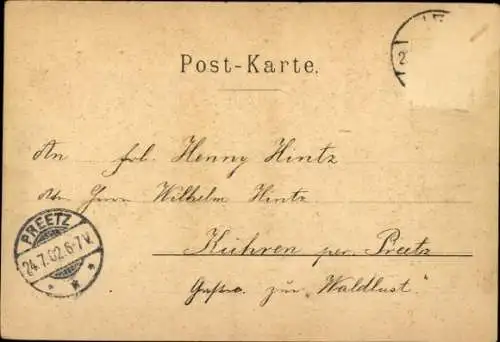 Post-Karte.
An frl. Henny Hintz
Herrn Wilhelm Hintz
Kühren per. Preetz
zur "Waldlust".
PREETZ
24.7.02.6-7V.